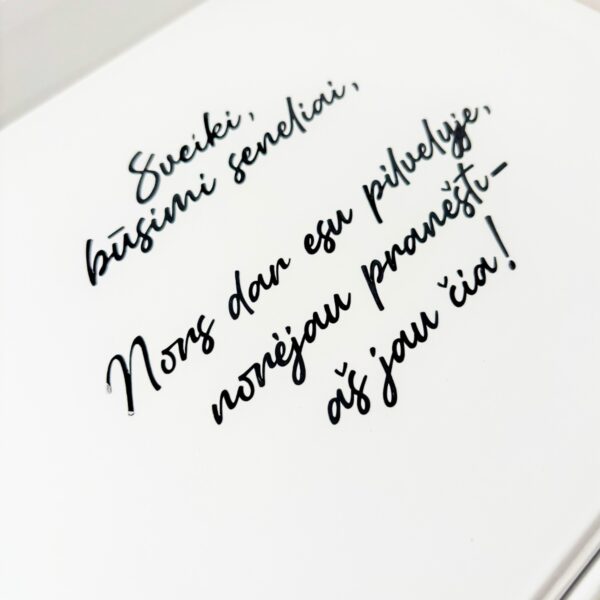 Sveiki,
būsimi seneliai,
Nors dar esu pilvelyje,
norėjau pranešti-
aš jau čia!